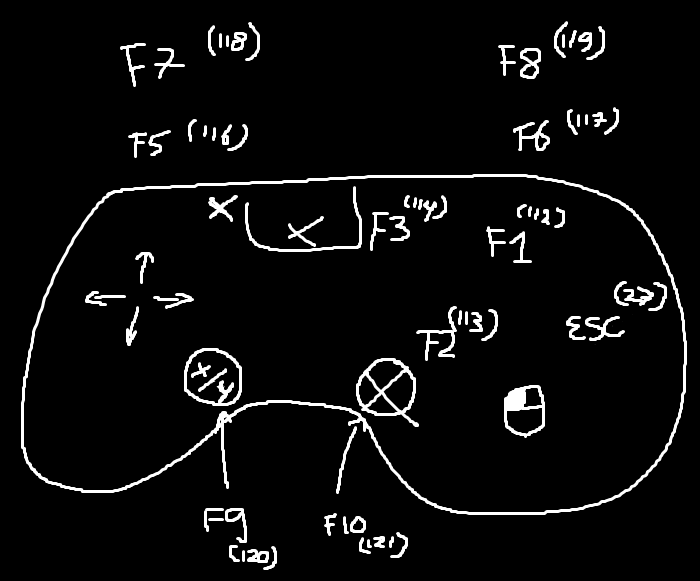 F7 (118)
F8 (119)
F5 (116)
F6 (117)
X
X
F3 (114)
F1 (112)
ESC (27)
F2 (113)
x/y
F9 (120)
F10 (121)